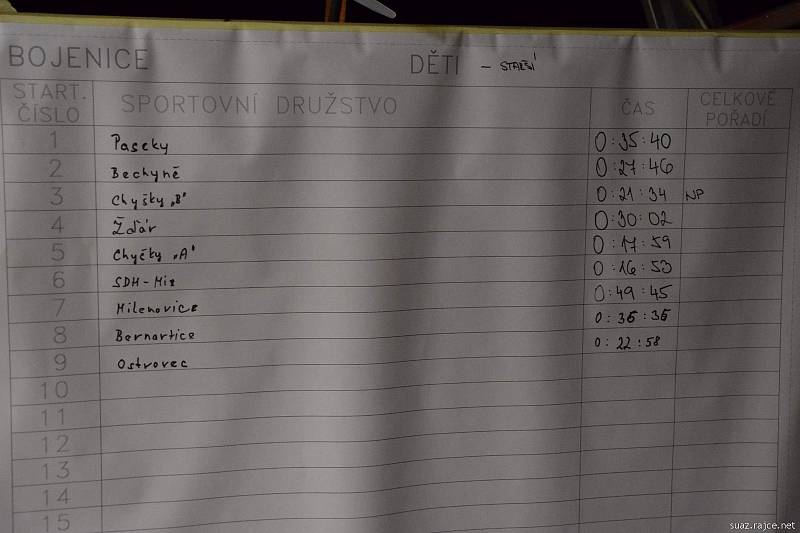 BOJENICE DĚTI - STARŠÍ
START. ČÍSLO SPORTOVNÍ DRUŽSTVO ČAS CELKOVÉ POŘADÍ
1 Paseky 0:35:40
2 Bechyně 0:27:46
3 Chyšky „B" 0:21:34 NP
4 Žďár 0:30:02
5 Chyšky „A" 0:17:59
6 SDH-Mix 0:16:53
7 Milenovice 0:49:45
8 Bernartice 0:36:36
9 Ostrovec 0:22:58
10
11
12
13
14
15
suaz.rajce.net